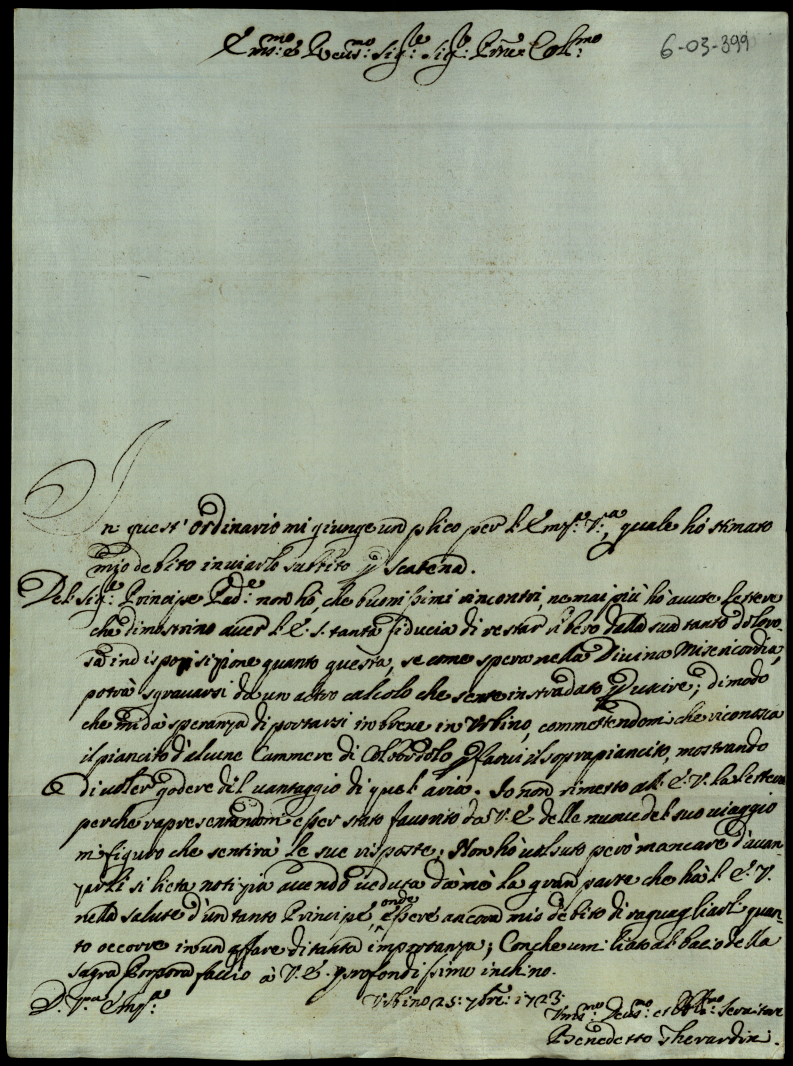 Em.mo e Reu.mo Sig.re Sig.re P.ne Col.mo
6-03-399
In quest' Ordinario mi giunge un plico per l'Em.za V.ra, quale hò stimato
mio debito inuiarlo subbito p Scatena.
Del Sig.re Principe Pad.e non hò, che buonissimi rincontri, ne mai più hò auute lettere
che dimostrino auer l'E. S. tanta fiducia di restar libero dalla sua tanto doloro-
sa indisposizione quanto questa, se come spera nella Diuina Misericordia,
potrà sgrauarsi da un altro calcolo che sente instradato p uscire; di modo
che mi dà speranza di portarsi in breue in Vrbino, commettendomi che riconosca
il piancito d'alcune Cammere di Colbordolo p farui il soprapiancito, mostrando
di uoler godere del uantaggio di quel aria. Io non rimetto all' E. V. la lettera
perche rapresentandomi esser stato fauorito da V. E. delle nuoue del suo uiaggio
mi figuro che sentirà le sue risposte; Non hò uolsuto però mancare d'auan-
zarli si lieta notizia auendo ueduta da mè la gran parte che hà l'E. V.
nella salute d'un tanto Principe onde essere ancora mio debito di raguagliarla quan-
to occorre in un affare di tanta importanza; Con che umiliato al bacio della
Sagra Porpora faccio à V. E. profondissimo inchino.
D. V.ra Em.za
Vrbino 25: 7bre: 1723
Vmil.mo Deuo.mo et Obl.mo Seruitore
Benedetto Gherardini.